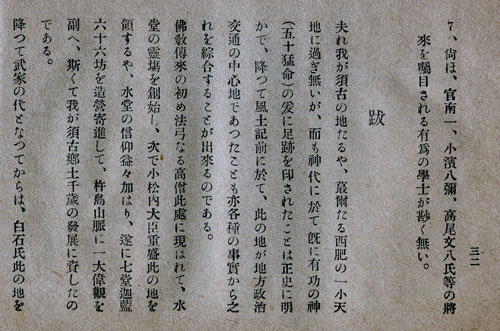 三二
7、尙ほ、官南一、小濱八彌、高尾文八氏等の將
來を囑目される有爲の學士が尠く無い。
跋
夫れ我が須古の地たるや、蕞爾たる西肥の一小天
地に過ぎ無いが、而も神代に於て旣に有功の神
(五十猛命)の爰に足跡を印されたことは正史に明
かで、降つて風土記前に於て、此の地が地方政治
交通の中心地であつたことも亦各種の事實から之
れを綜合することが出來るのである。
佛敎傳來の初め法弓なる高僧此處に現はれて、水
堂の靈場を創始し、次で小松內大臣重盛此の地を
領するや、水堂の信仰益々加はり、遂に七堂迦藍
六十六坊を造營寄進して、杵島山脈に一大偉觀を
副へ、斯くて我が須古鄕土千歲の發展に資したの
である。
降つて武家の代となつてからは、白石氏此の地を